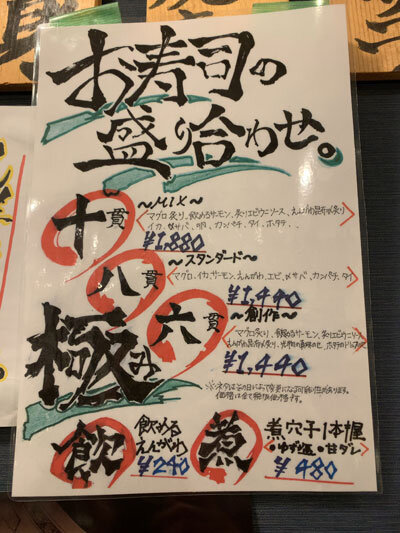 お寿司の
盛り合わせ。
十貫 ～MIX～
マグロ炙り、飲めるサーモン、炙りエビウニソース、えんがわ昆布〆炙り
イカ、〆サバ、カンパチ、タイ、ホタテ、、
¥1,880
八貫 ～スタンダード～
マグロ、イカ、サーモン、えんがわ、エビ、〆サバ、カンパチ、タイ
¥1,440
極み
六貫 ～創作～
マグロ炙り、飲めるサーモン、炙りエビウニソース
えんがわ昆布〆炙り、
¥1,440
※ネタは日によって変更になる可能性があります。
価格は全て税別価格です。
飲 飲める
えんがわ
¥240
煮 煮穴子1本握
・ゆず塩 ・甘ダレ
¥480